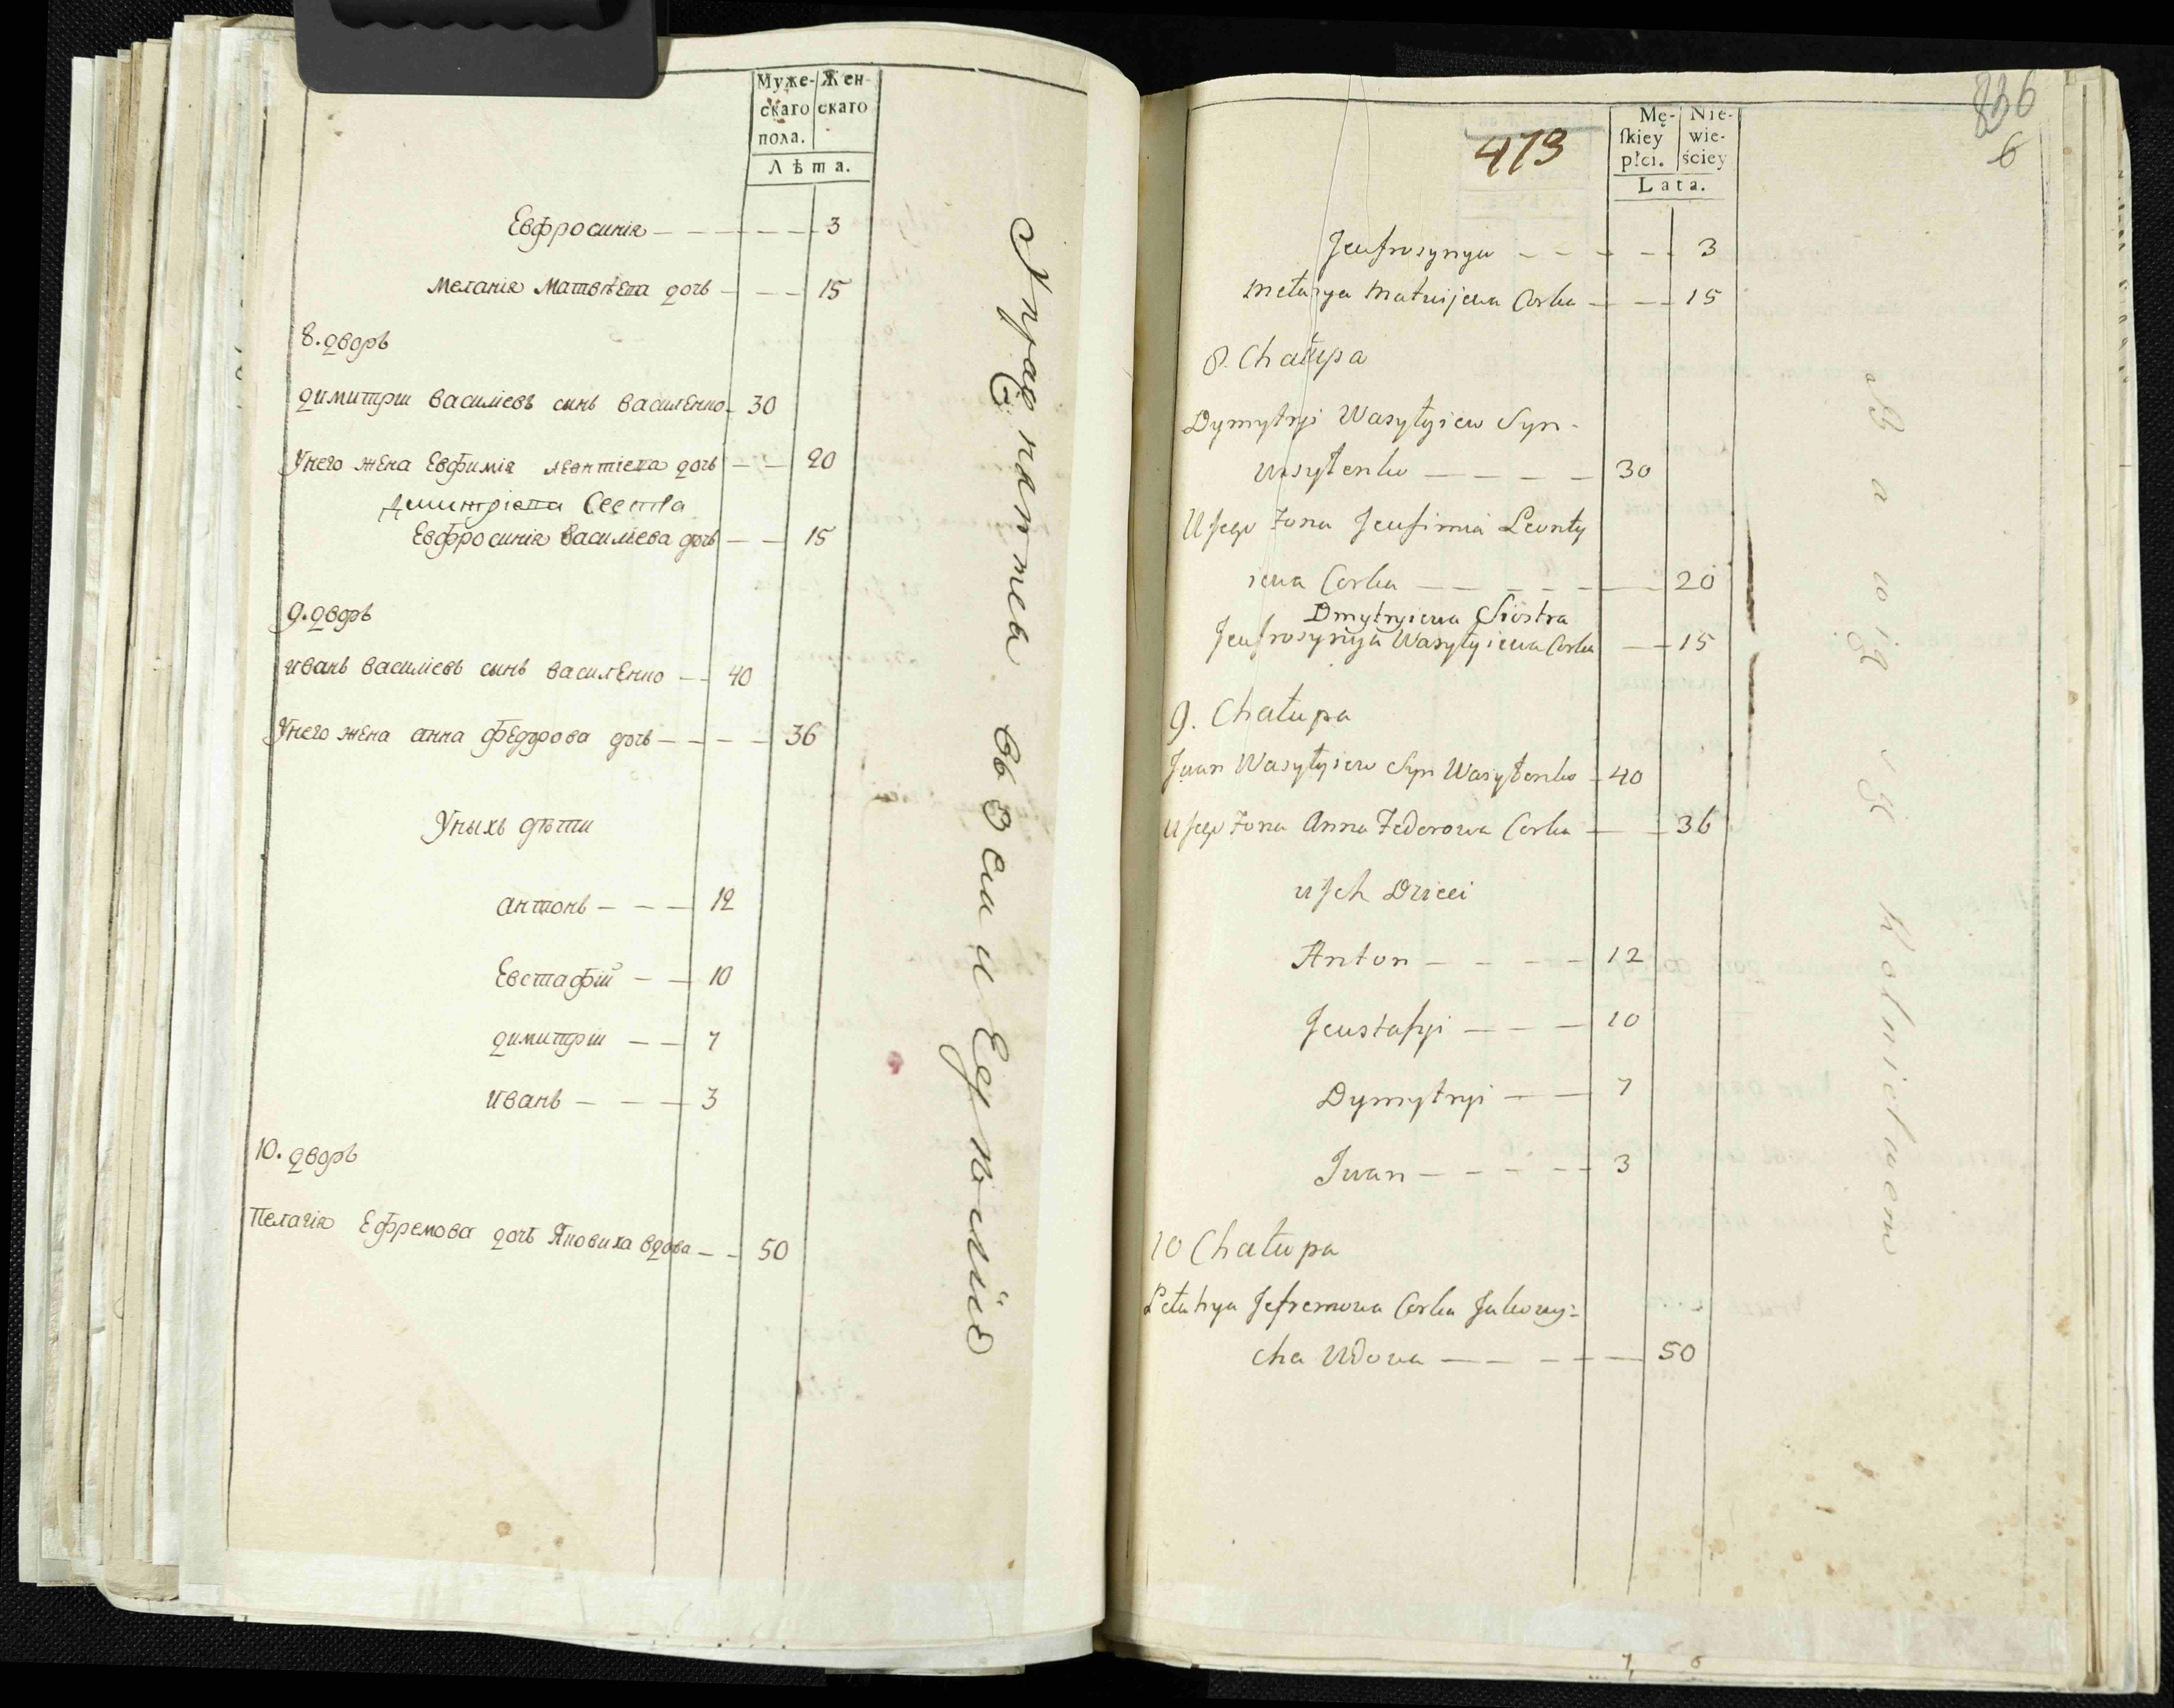 Муже- Жен-
скаго скаго
пола.
Лѣта.
Евфросинія — — — — — 3
Меланія Матвѣева дочь — — — 15
8. дворъ
Димитрій Василіевъ синъ Василенко — 30
Унего жена Евфимія Леонтіева дочь — — 20
Димитріева Сестра
Евфросинія Василіева дочь — — 15
9. дворъ
иванъ Василіевъ сынъ Василенко — — 40
Унего жена анна Федорова дочь — — — — 36
Уныхъ дѣти
антонъ — — — 12
Евстафій — — 10
Димитрій — — 7
иванъ — — — 3
10. дворъ
Пелагія Ефремова дочь Яковиха вдова — — 50
836
6
473
Mę- Nie-
skiey wie-
płci. ściey
Lata.
Jeufrosynya — — — — 3
Mełanya Matwijewa Corka — — — 15
8. Chałupa
Dymytryi Wasyłyiew Syn-
Wasyłenko — — — — 30
U Jego Zona Jeufimia Leonty
iewa Corka — — — — — 20
Dmytryiewa Siostra
Jeufrosynya Wasyłyiewa Corka — — 15
9. Chałupa
Jwan Wasyłyiew Syn Wasyłenko — 40
U Jego Zona Anna Fedorowa Corka — — 36
u Jch Dzieci
Anton — — — — 12
Jeustafyi — — — 10
Dymytryi — — 7
Jwan — — — — — 3
10 Chałupa
Pełahya Jefremowa Corka Jakowy-
cha Wdowa — — — — — 50